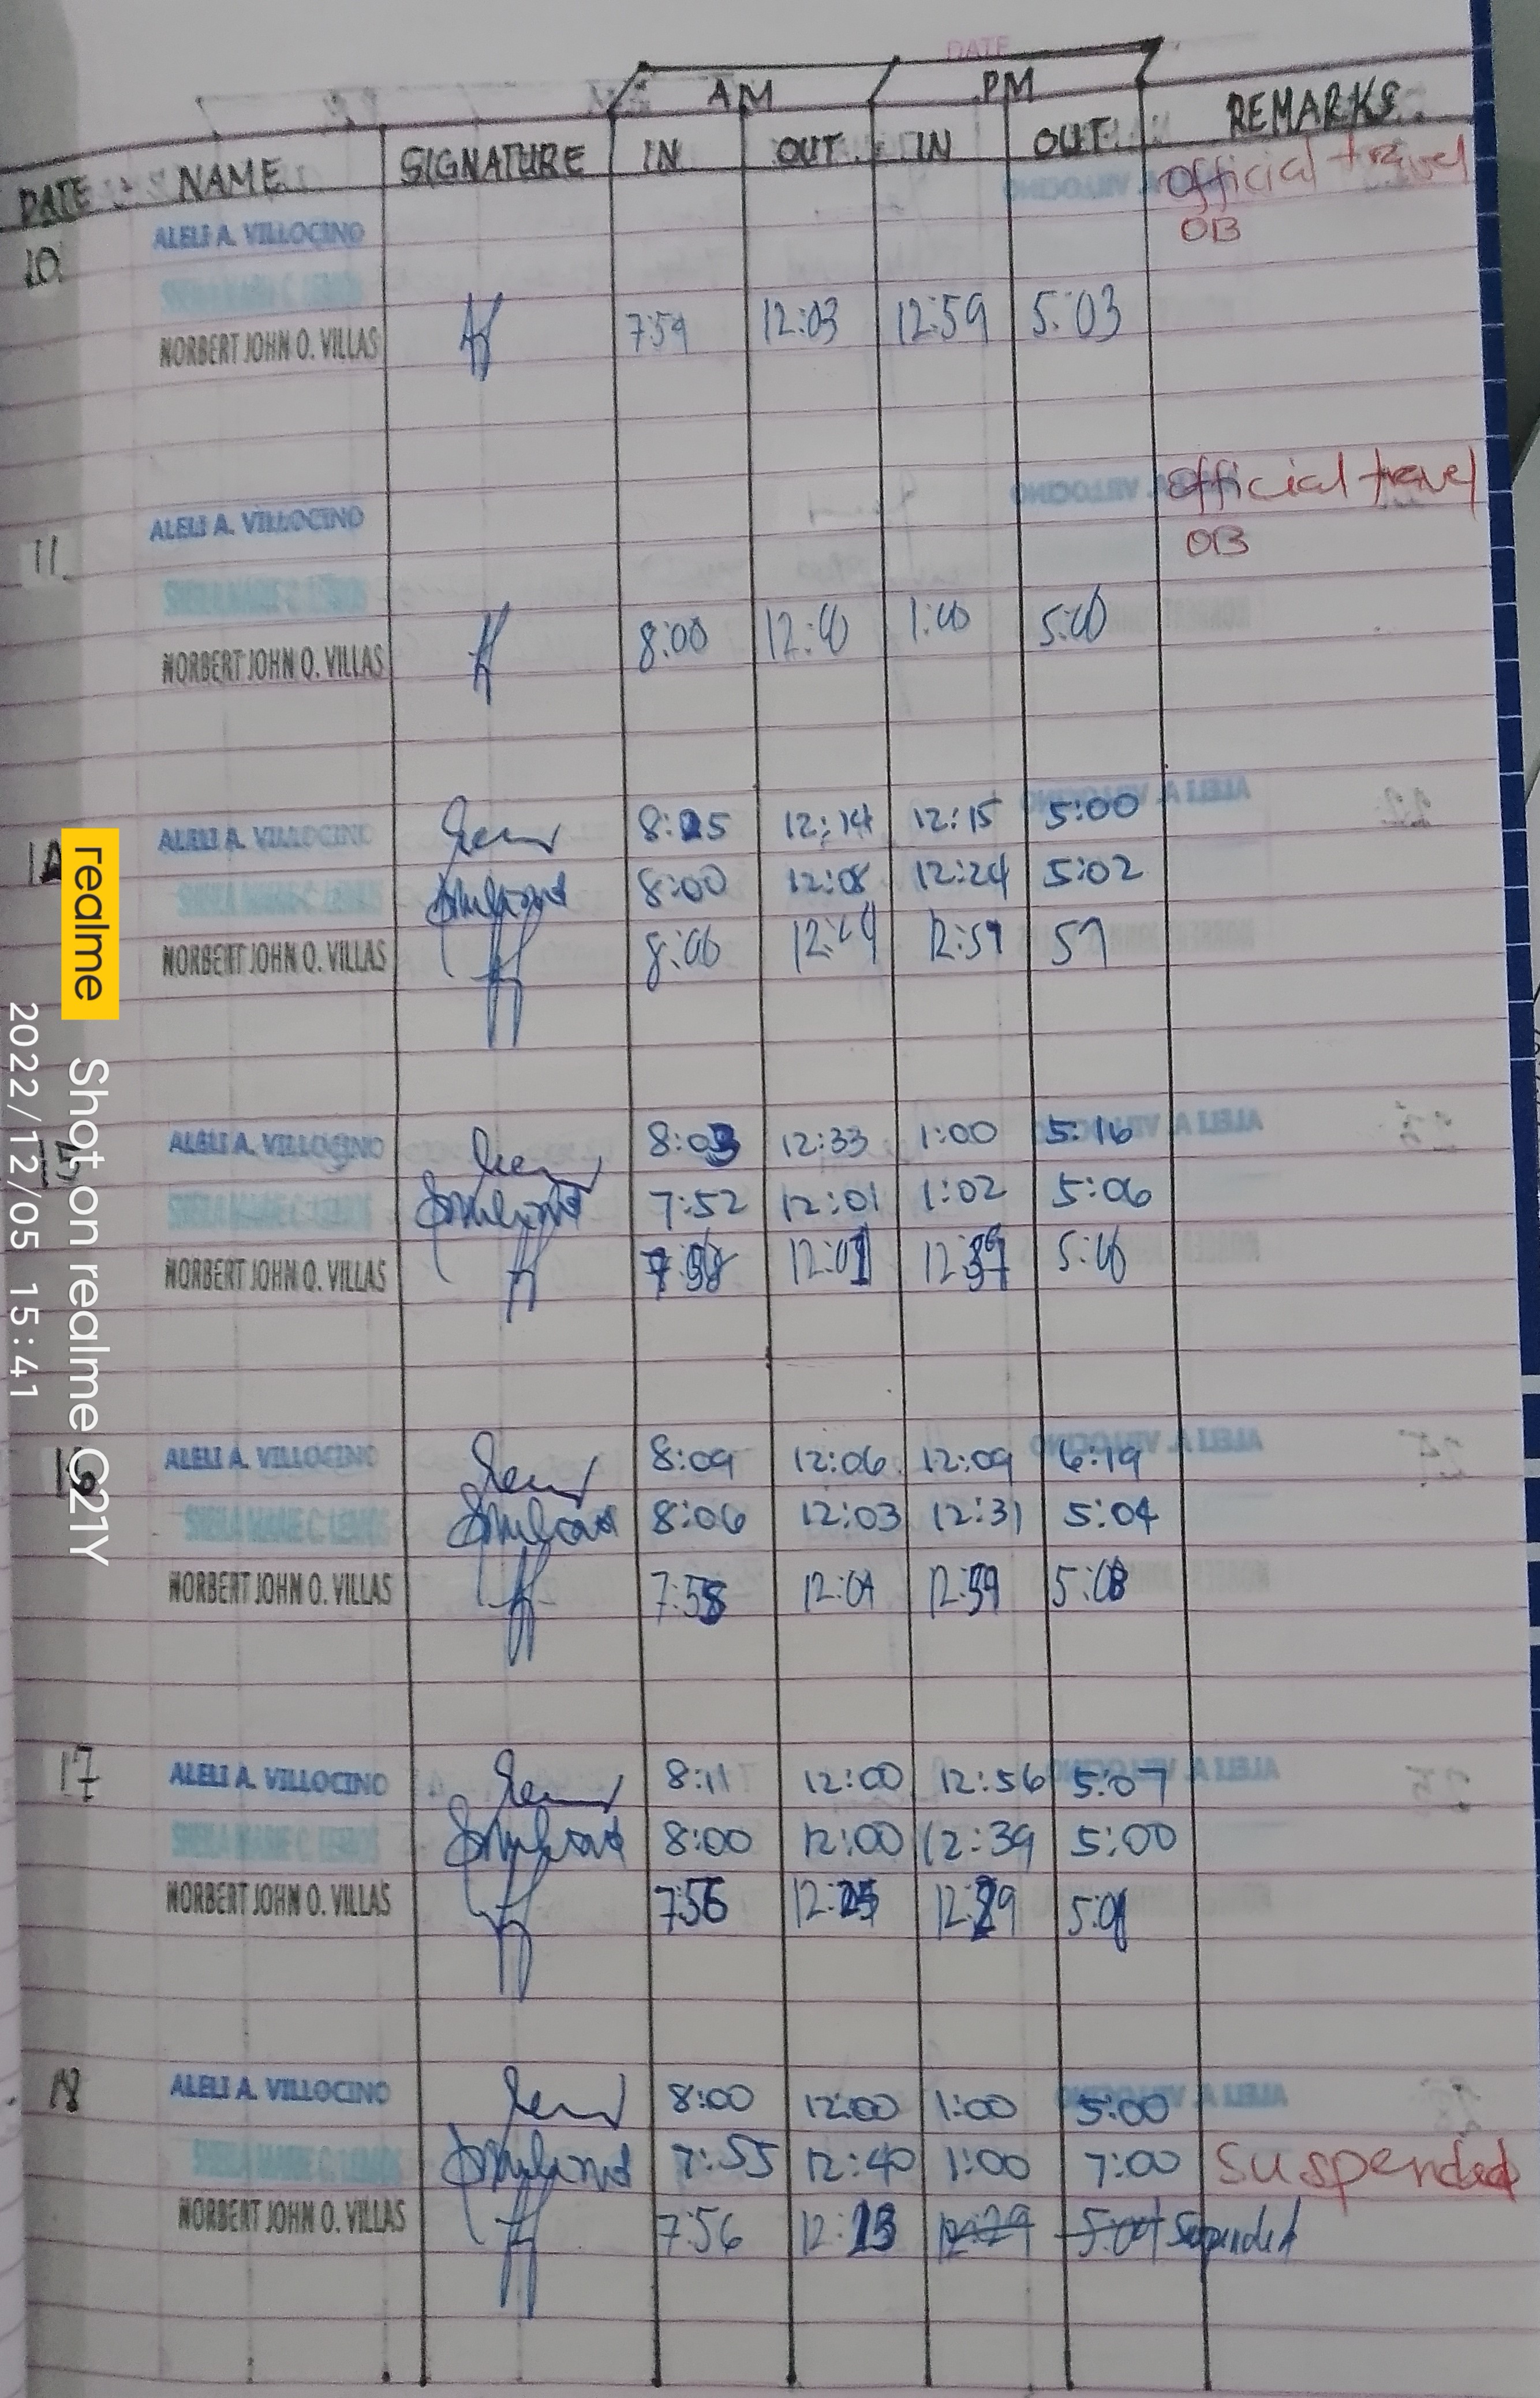 DATE
AM PM
DATE NAME SIGNATURE IN OUT IN OUT REMARKS
10 ALELI A. VILLOCINO official travel
OB
NORBERT JOHN O. VILLAS 7:59 12:03 12:59 5:03
11 ALELI A. VILLOCINO official travel
OB
NORBERT JOHN O. VILLAS 8:00 12:00 1:00 5:00
ALELI A. VILLOCINO 12:14 12:15 5:00
SHEILA MARIE C. 8:00 12:08 12:24 5:02
NORBERT JOHN O. VILLAS 8:00 12:59
ALELI A. VILLOCINO 8:03 12:33 1:00 5:16
SHEILA MARIE C. 7:52 12:01 1:02 5:06
NORBERT JOHN O. VILLAS
16 ALELI A. VILLOCINO 8:09 12:06 12:09 6:19
SHEILA MARIE C. 8:06 12:03 12:31 5:04
NORBERT JOHN O. VILLAS 7:58 12:04 12:59
17 ALELI A. VILLOCINO 8:11 12:00 12:56 5:07
SHEILA MARIE C. 8:00 12:00 12:39 5:00
NORBERT JOHN O. VILLAS 7:56
18 ALELI A. VILLOCINO 8:00 12:00 1:00 5:00
SHEILA MARIE C. 7:55 12:40 1:00 7:00 Suspended
NORBERT JOHN O. VILLAS 7:56 12:13 12:29 Suspended
realme Shot on realme C21Y
2022/12/05 15:41